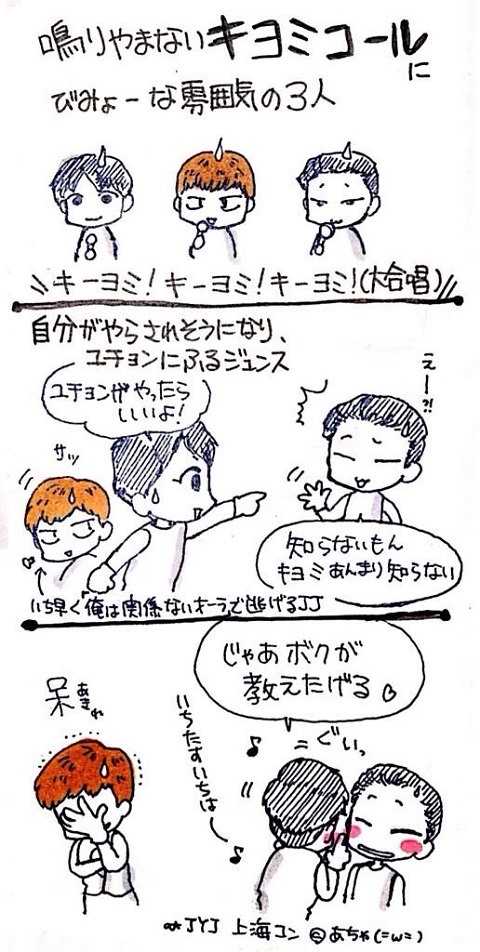 鳴りやまないキヨミコールに
びみょーな雰囲気の3人
\\キーヨミ!キーヨミ!キーヨミ!(大合唱)//
自分がやらされそうになり、
ユチョンにふるジュンス
ユチョンがやったら
いいよ!
えー?!
サッ
知らないもん
キヨミあんまり知らない
いち早く俺は関係ないオーラで逃げるJJ
じゃあボクが
教えたげる♡
呆
あきれ
いちたすいちは〜♪
♪
=ぐいっ
JYJ 上海コン ©あちゃ(=ω=)